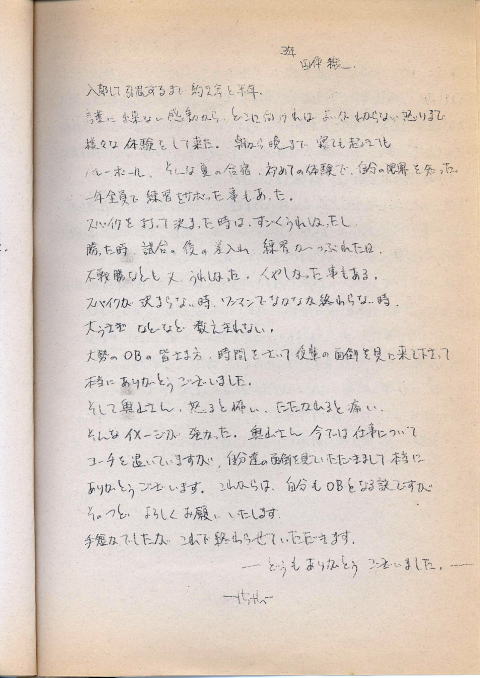 3年
入部して引退するまで 約2年と半年.
誰にも出来ない感動から、どこに向ければ よいかわからない怒りまで
様々な体験をして来た。朝から晩まで 寝ても起きても
バレーボール、そんな夏の合宿、初めての体験で、自分の限界を知った。
一年全員で練習をサボった事もあった。
スパイクを打って決まった時は、すごくうれしかったし
勝った時、試合の後の差入れ、練習がつぶれた日、
不戦勝なども又、うれしかった。くやしかった事もある。
スパイクが決まらない時、ワンマンでなかなか終わらない時、
などなど 数えきれない。
大勢のOBの皆さま方、時間をさいて後輩の面倒を見に来て下さって
本当にありがとうございました。
そして奥山さん、怒ると怖い、たたかれると痛い、
そんなイメージが強かった。奥山さん 今では仕事について
コーチを退いていますが、自分達の面倒を見ていただきまして本当に
ありがとうございます。これからは、自分もOBとなる訳ですが
そのつど よろしくお願いいたします。
手短かでしたが これで終わらせていただきます。
― どうもありがとうございました。―